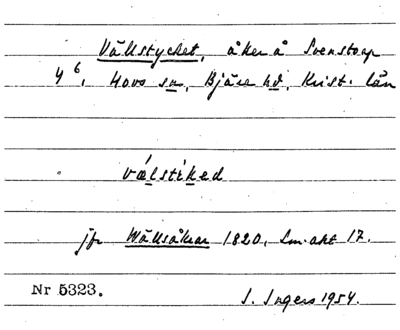 Vällstycket, åker å Svenstorp
4⁶, Hovs sn, Bjäre hd, Krist. län
vælstiked
jfr Wällsåkrar 1820, Lm. akt 17.
Nr 5323.
I. Ingers 1954.